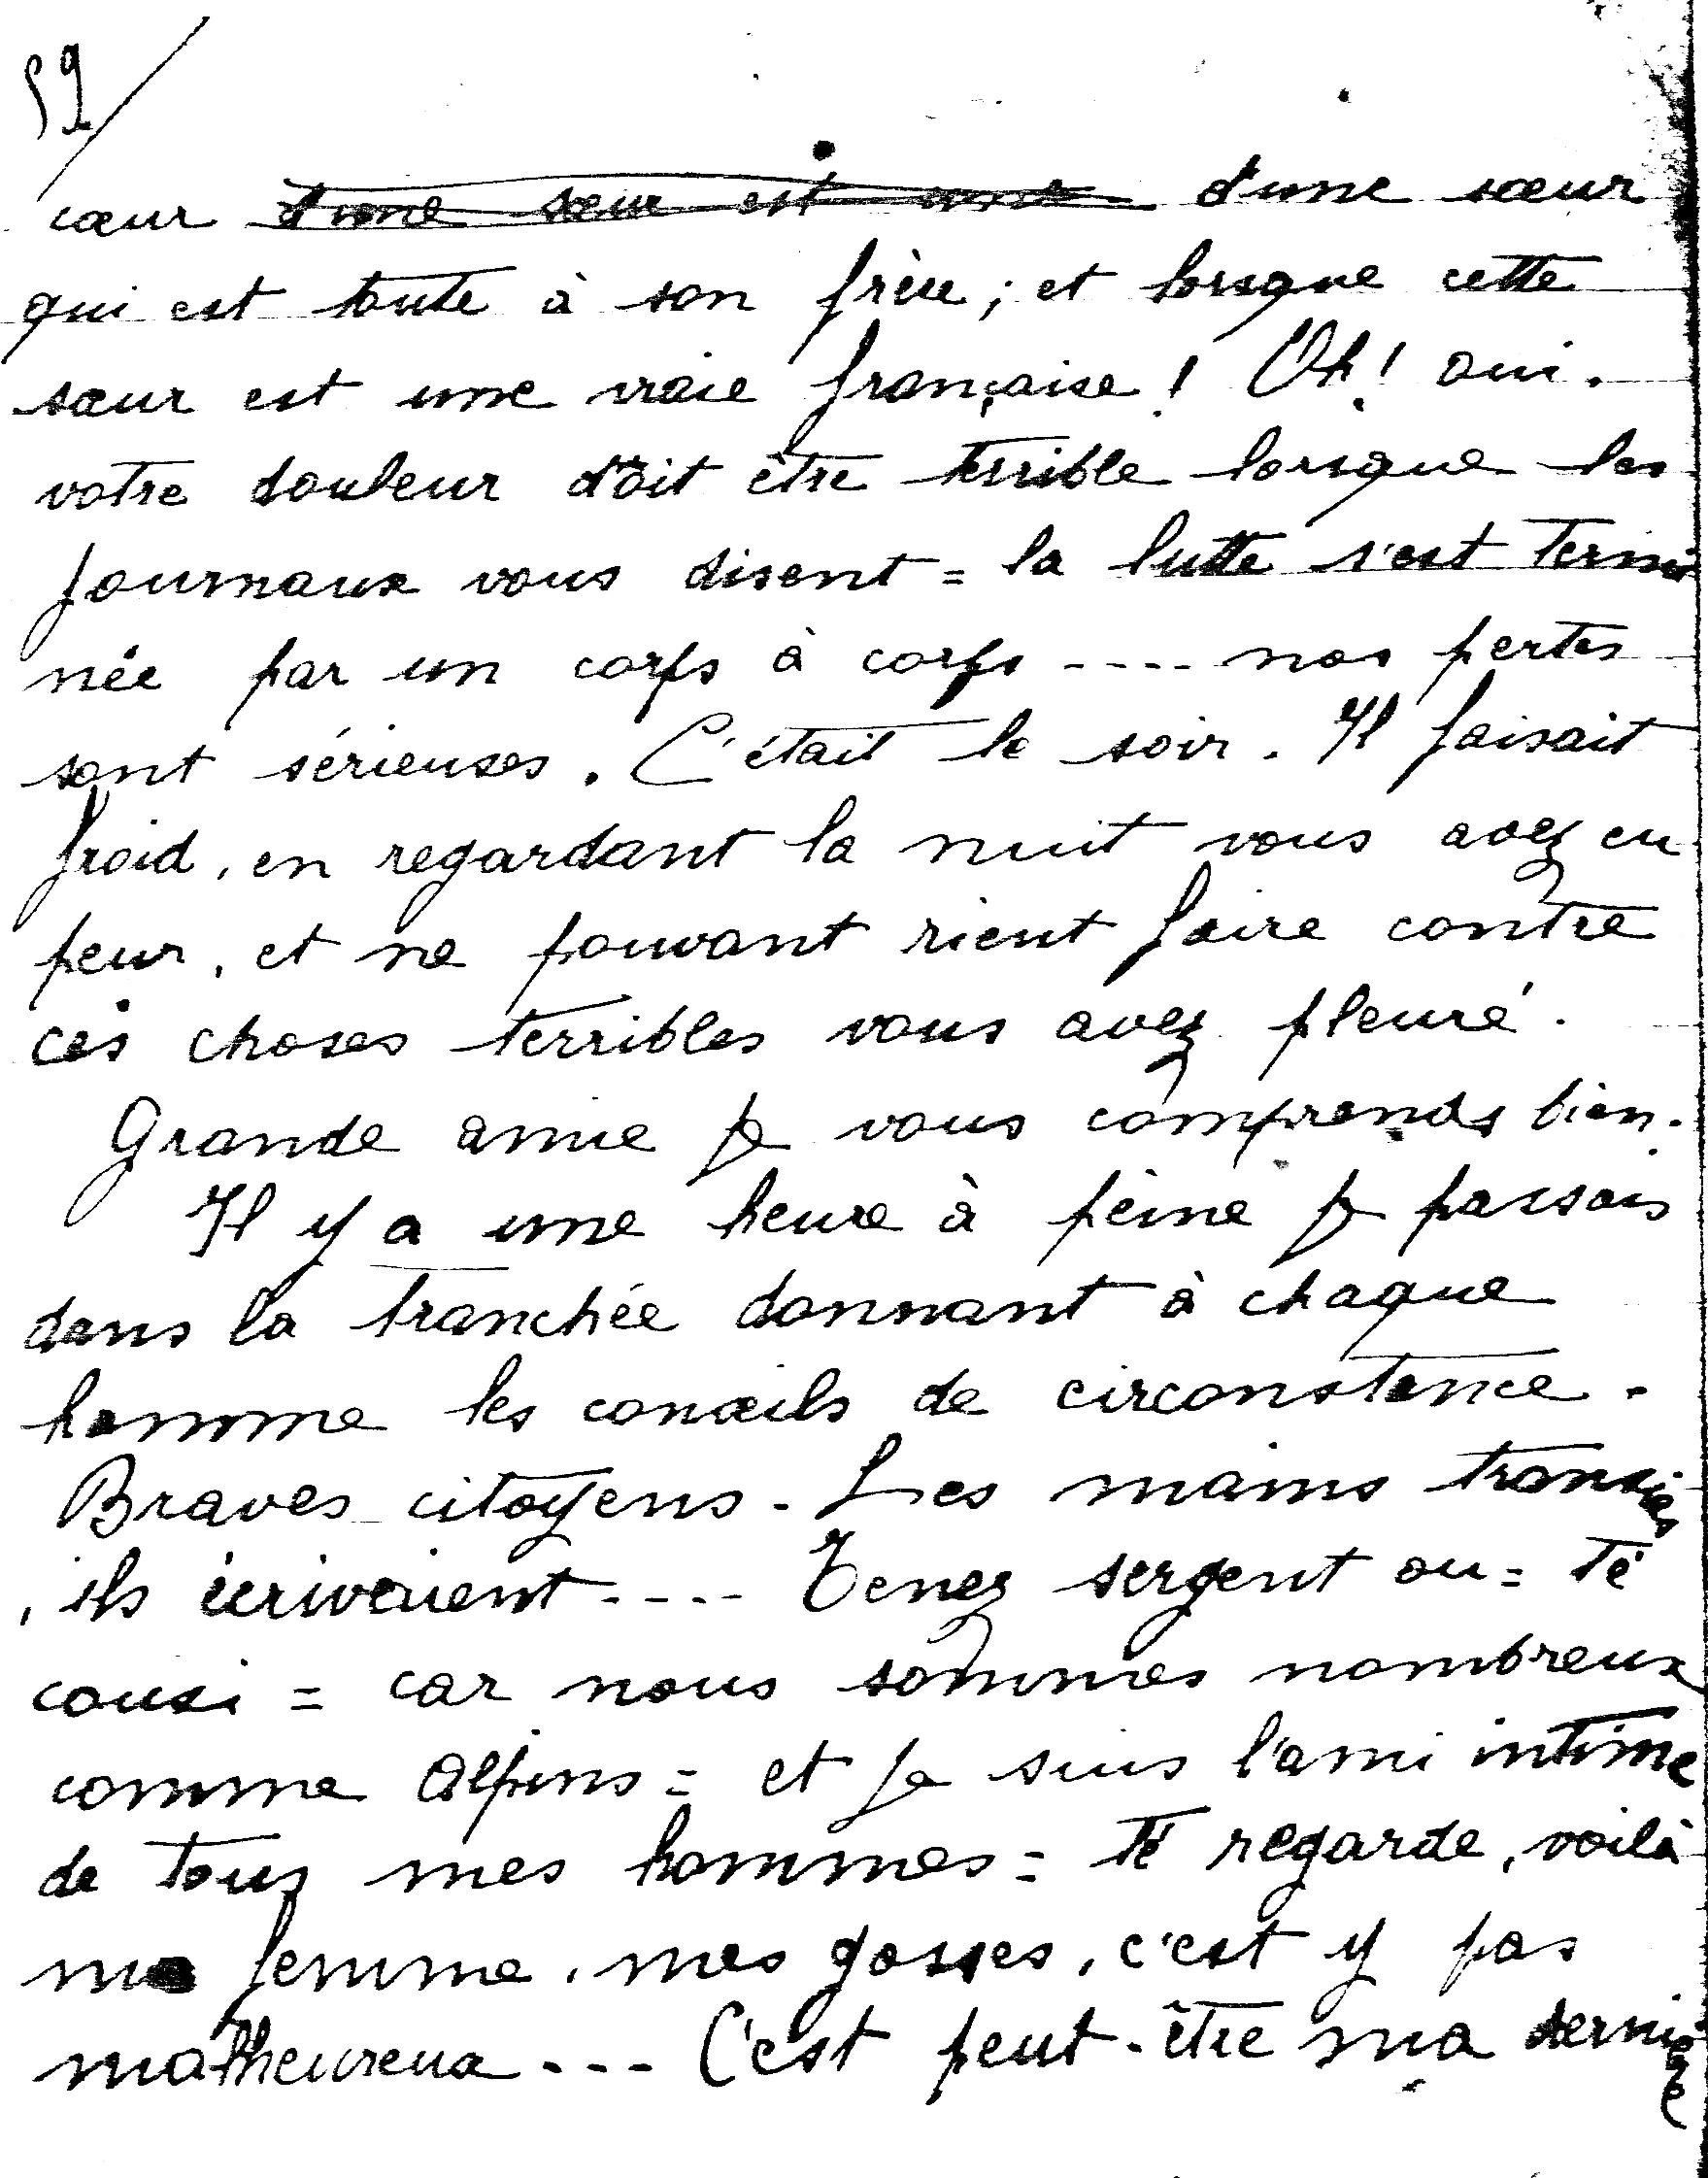 59/
cœur d'une sœur est une d'une sœur
qui est toute à son frère; et lorsque cette
sœur est une vraie française! Oh! oui.
votre douleur doit être terrible lorsque les
journaux vous disent = la lutte s'est termi
née par un corps à corps ---- nos pertes
sont sérieuses. C'était le soir. Il faisait
froid, en regardant la nuit vous avez eu
peur, et ne pouvant rient faire contre
ces choses terribles vous avez pleuré.
Grande amie je vous comprends bien.
Il y a une heure à peine je passais
dans la tranchée donnant à chaque
homme les conseils de circonstance.
Braves citoyens. Les mains transies
, ils écrivaient ---- Tenez sergent ou = té
cousi = car nous sommes nombreux
comme Alpins = et je suis l'ami intime
de tous mes hommes = Té regarde, voilà
ma femme, mes gosses, c'est y pas
malheureux --- C'est peut-être ma dernière